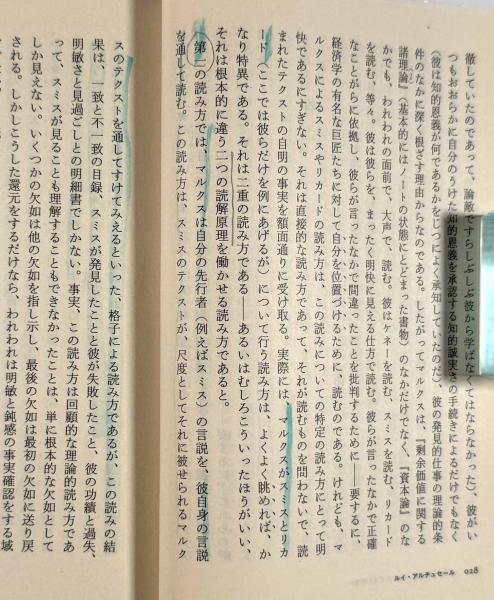 徹していたのであって、論敵ですらしぶしぶ彼から学ばなくてはならなかった)、彼がい
つもおおらかに自分のうけた知的恩義を承認する知的誠実さの手続きによるだけでもなく
(彼は知的恩義が何であるかをじつによく承知していたのだ)、彼の発見的仕事の理論的条
件のなかに深く根ざす理由からなのである。したがってマルクスは、『剰余価値に関する
諸理論』(基本的にはノートの状態にとどまった書物)のなかだけでなく、『資本論』のな
かでも、われわれの面前で、大声で、読む。彼はケネーを読む、スミスを読む、リカード
を読む、等々。彼は彼らを、まったく明快に見える仕方で読む。彼らが言ったなかで正確
なことがらに依拠し、彼らが言ったなかで間違ったことを批判するために――要するに、
経済学の有名な巨匠たちに対して自分を位置づけるために、読むのである。けれども、マ
ルクスによるスミスやリカードの読み方は、この読みについての特定の読み方にとって明
快であるにすぎない。それは直接的な読み方であって、それが読むものを問わないで、読
まれたテクストの自明の事実を額面通りに受け取る。実際には、マルクスがスミスとリカ
ード(ここでは彼らだけを例にあげるが)について行う読み方は、よくよく眺めれば、か
なり特異である。それは二重の読み方である――あるいはむしろこういったほうがいい、
それは根本的に違う二つの読解原理を働かせる読み方であると。
第一の読み方では、マルクスは自分の先行者(例えばスミス)の言説を、彼自身の言説
を通して読む。この読み方は、スミスのテクストが、尺度としてそれに被せられるマルク
スのテクストを通してすけてみえるといった、格子による読み方であるが、この読みの結
果は、一致と不一致の目録、スミスが発見したことと彼が失敗したこと、彼の功績と過失、
明敏さと見過ごしとの明細書でしかない。事実、この読み方は回顧的な理論的読み方であ
って、スミスが見ることも理解することもできなかったことは、単に根本的な欠如として
しか見えない。いくつかの欠如は他の欠如を指し示し、最後の欠如は最初の欠如に送り戻
される。しかしこうした還元をするだけなら、われわれは明敏と鈍感の事実確認をする域
028
ルイ・アルチュセール